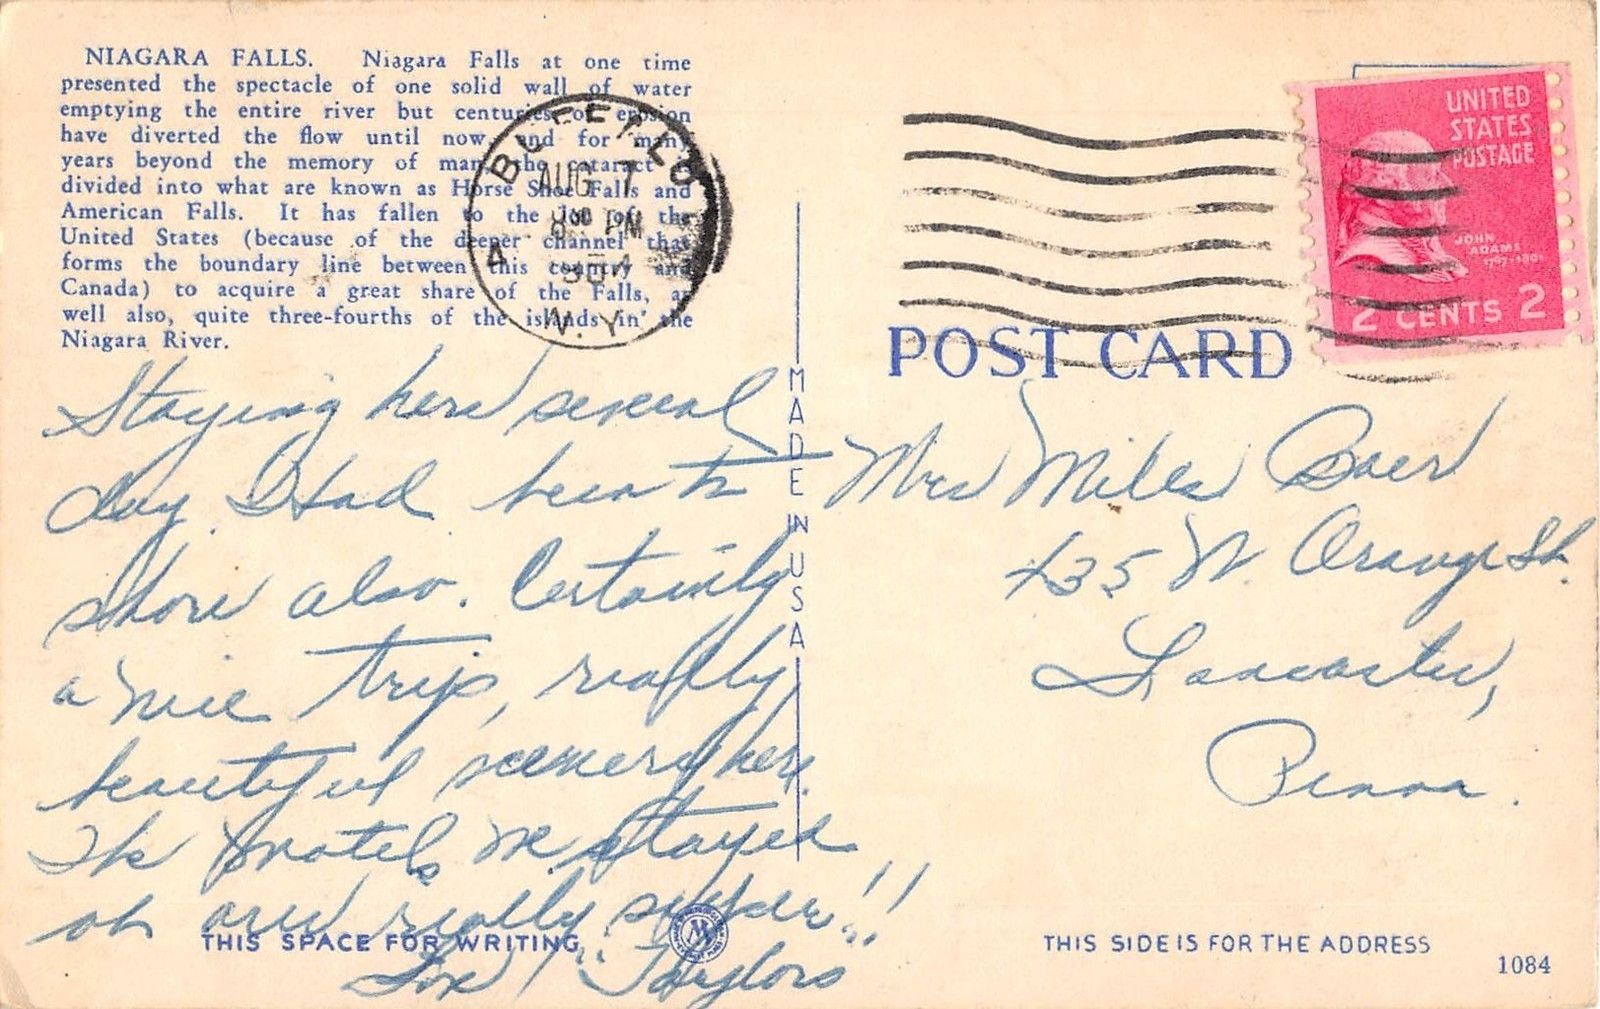 NIAGARA FALLS. Niagara Falls at one time
presented the spectacle of one solid wall of water
emptying the entire river but centuries of erosion
have diverted the flow until now and for many
years beyond the memory of man the cataract
divided into what are known as Horse Shoe Falls and
American Falls. It has fallen to the lot of the
United States (because of the deeper channel that
forms the boundary line between this country and
Canada) to acquire a great share of the Falls, as
well also, quite three-fourths of the islands in the
Niagara River.
BUFFALO
AUG 7
8 30 PM
N.Y.
UNITED
STATES
POSTAGE
JOHN
ADAMS
1797-1801
2 CENTS 2
POST CARD
MADE IN USA
Staying here several
day. Had been to
shore also. Certainly
a nice trip, really
beautiful scenery here.
The motels we stayed
at are really super!!
Taylors
Mrs Miles Baer
435 N. Orange St.
Lancaster,
Penna.
THIS SPACE FOR WRITING
THIS SIDE IS FOR THE ADDRESS
1084